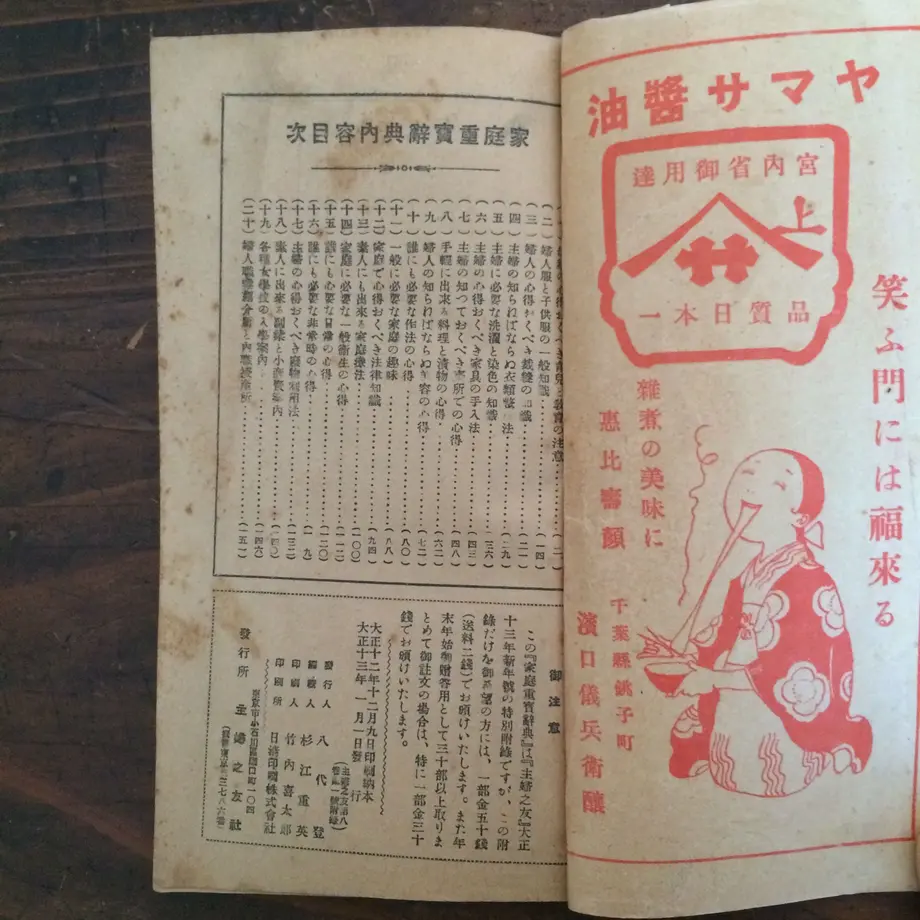 ヤマサ醬油
宮內省御用達
上
品質日本一
笑ふ門には福來る
雜煮の美味に
惠比壽顏
千葉縣銚子町
濱口儀兵衞釀
家庭重寶辭典內容目次
(二) 婦人服と子供服の一般知識(一四)
(三) 婦人の心得おくべき裁縫の知識(二一)
(四) 主婦の知らねばならぬ衣類整法(二九)
(五) 主婦に必要な洗濯と染色の知識(三六)
(六) 主婦の心得おくべき家具の手入法(四三)
(七) 主婦の知つておくべき臺所での心得(四八)
(八) 手輕に出來る料理と漬物の心得(六二)
(九) 婦人の知らねばならぬ美容の心得(七二)
(十) 誰にも必要な作法の心得(八〇)
(十一) 一般に必要な家庭の趣味(八八)
(十二) 家庭で心得おくべき法律知識(九四)
(十三) 素人にも出來る家庭療法(一〇〇)
(十四) 家庭に必要な一般衞生の心得(一一二)
(十五) 誰にも必要な日常の心得(一二〇)
(十六) 誰にも必要な非常時の心得
(十七) 主婦の心得おくべき廢物利用法(一三二)
(十八) 素人に出來る副業と小資案內(一四〇)
(十九) 各種女學校の入學案內(一四六)
(二十) 婦人職業紹介所と內職授產所(一五一)
御注意
この『家庭重寶辭典』は『主婦之友』大正
十三年新年號の特別附錄ですが、この附
錄だけを御希望の方には、一部金五十錢
(送料二錢)でお頒けいたします。また年
末年始御贈答用として三十部以上取りま
とめて御註文の場合は、特に一部金三十
錢でお頒けいたします。
大正十二年十二月九日印刷納本
大正十三年一月一日發行
發行人 八代登
編輯人 杉江重英
印刷人 竹內喜太郎
印刷所 日淸印刷株式會社
發行所 主婦之友社